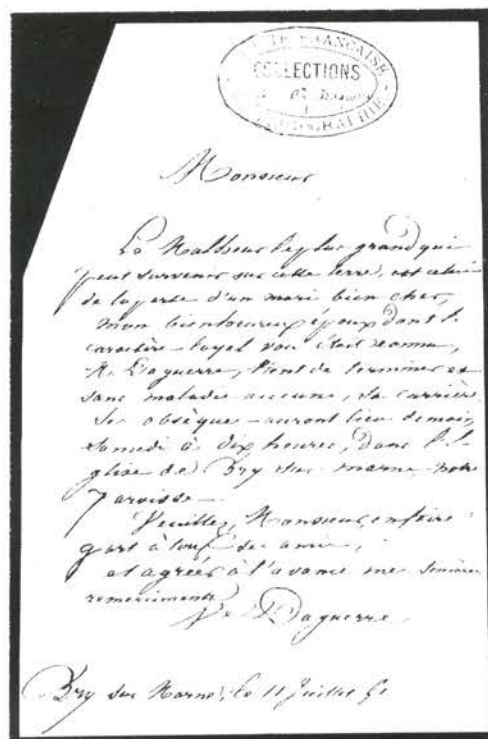 COLLECTIONS
Monsieur
Le Malheur le plus grand qui
peut survenir sur cette terre, est celui
de la perte d'un mari bien cher,
mon bienheureux époux dont le
caractère loyal vous était connu,
M. Daguerre, vient de terminer et
sans maladie aucune, sa carrière.
Ses obsèques auront lieu demain
samedi à dix heures, dans l'E-
glise de Bry sur marne notre
Paroisse
Veuillez, Monsieur, en faire
part à tous ses amis,
et agréer à l'avance mes sincères
remerciments
Ve Daguerre.
Bry sur Marne, le 11 Juillet 51